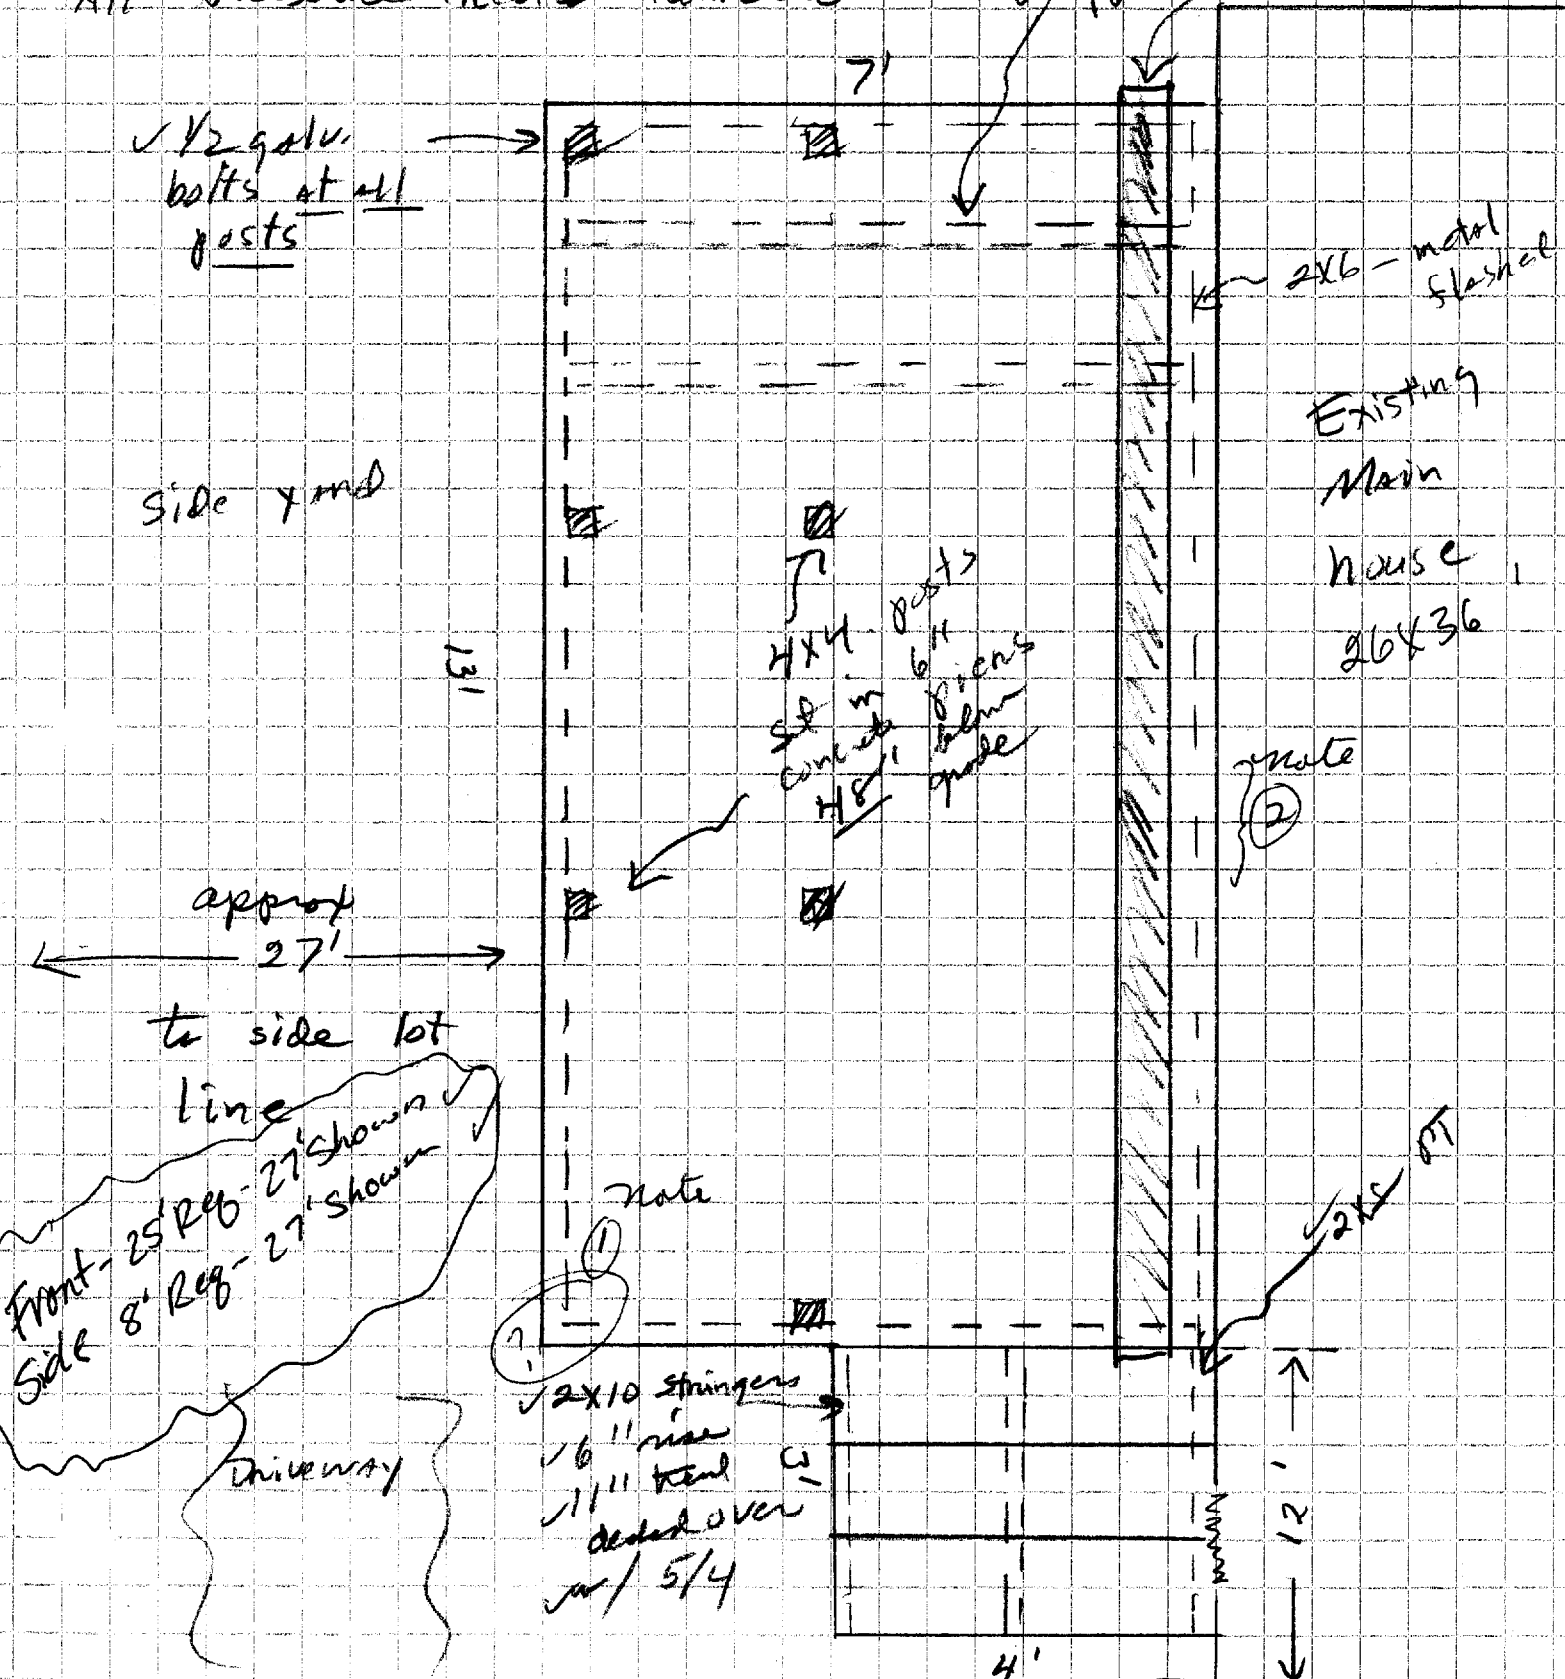 All Pressure Treated
7'
✓ 1/2 galv.
bolts at all
posts
2X6 - metal
flashed
Existing
Main
house
26X36
Side yard
13'
4X4 posts
set in 6"
concrete piers
48" below
grade
note
②
approx
27'
to side lot
line
Front - 25' Req - 27' Shown ✓
Side 8' Req - 27' Shown ✓
note
①
?
✓ 2X8 PT
✓ 2X10 Stringers
✓ 6" rise
✓ 11" tread
decked over
w/ 5/4
3'
Driveway
12'
4'